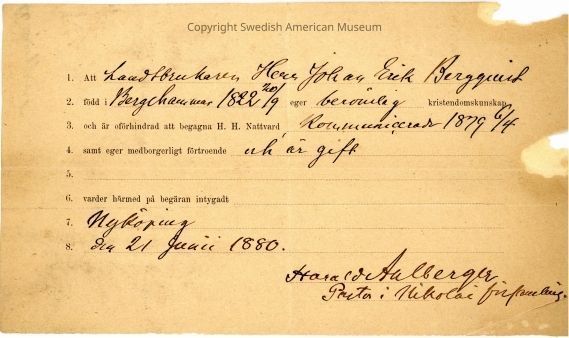 Copyright Swedish American Museum
1. Att Landtbrukaren Herr Johan Erik Bergqvist
2. född i Bergshammar 1822 20/9 eger berömlig kristendomskunskap
3. och är oförhindrad att begagna H. H. Nattvard, kommunicerade 1879 6/4
4. samt eger medborgerligt förtroende och är gift
5.
6. varder härmed på begäran intygadt
7. Nyköping
8. den 21 Junii 1880.
Harald Aulberger
Pastor i Nikolai församling.